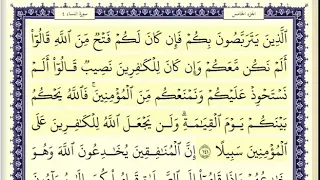 الجزء الخامس سورة النساء ٤
ٱلَّذِينَ يَتَرَبَّصُونَ بِكُمْ فَإِن كَانَ لَكُمْ فَتْحٌ مِّنَ ٱللَّهِ قَالُوٓا۟
أَلَمْ نَكُن مَّعَكُمْ وَإِن كَانَ لِلْكَٰفِرِينَ نَصِيبٌ قَالُوٓا۟ أَلَمْ
نَسْتَحْوِذْ عَلَيْكُمْ وَنَمْنَعْكُم مِّنَ ٱلْمُؤْمِنِينَ ۚ فَٱللَّهُ يَحْكُمُ
بَيْنَكُمْ يَوْمَ ٱلْقِيَٰمَةِ ۗ وَلَن يَجْعَلَ ٱللَّهُ لِلْكَٰفِرِينَ عَلَى
ٱلْمُؤْمِنِينَ سَبِيلًا ١٤١ إِنَّ ٱلْمُنَٰفِقِينَ يُخَٰدِعُونَ ٱللَّهَ وَهُوَ